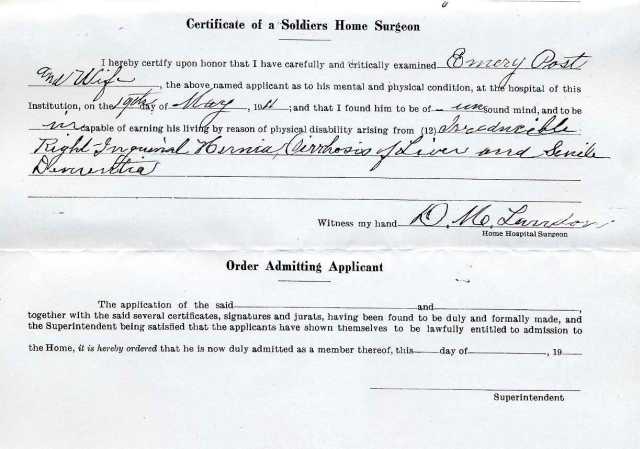 Certificate of a Soldiers Home Surgeon
I hereby certify upon honor that I have carefully and critically examined Emery Post
and Wife, the above named applicant as to his mental and physical condition, at the hospital of this
Institution, on the 19th day of May, 1911; and that I found him to be of un sound mind, and to be
in capable of earning his living by reason of physical disability arising from (12) Irreducible
Right Inguinal Hernia, Cirrhosis of Liver and Senile
Dementia
Witness my hand D. M. Landon
Home Hospital Surgeon
Order Admitting Applicant
The application of the said and
together with the said several certificates, signatures and jurats, having been found to be duly and formally made, and
the Superintendent being satisfied that the applicants have shown themselves to be lawfully entitled to admission to
the Home, it is hereby ordered that he is now duly admitted as a member thereof, this day of , 19
Superintendent